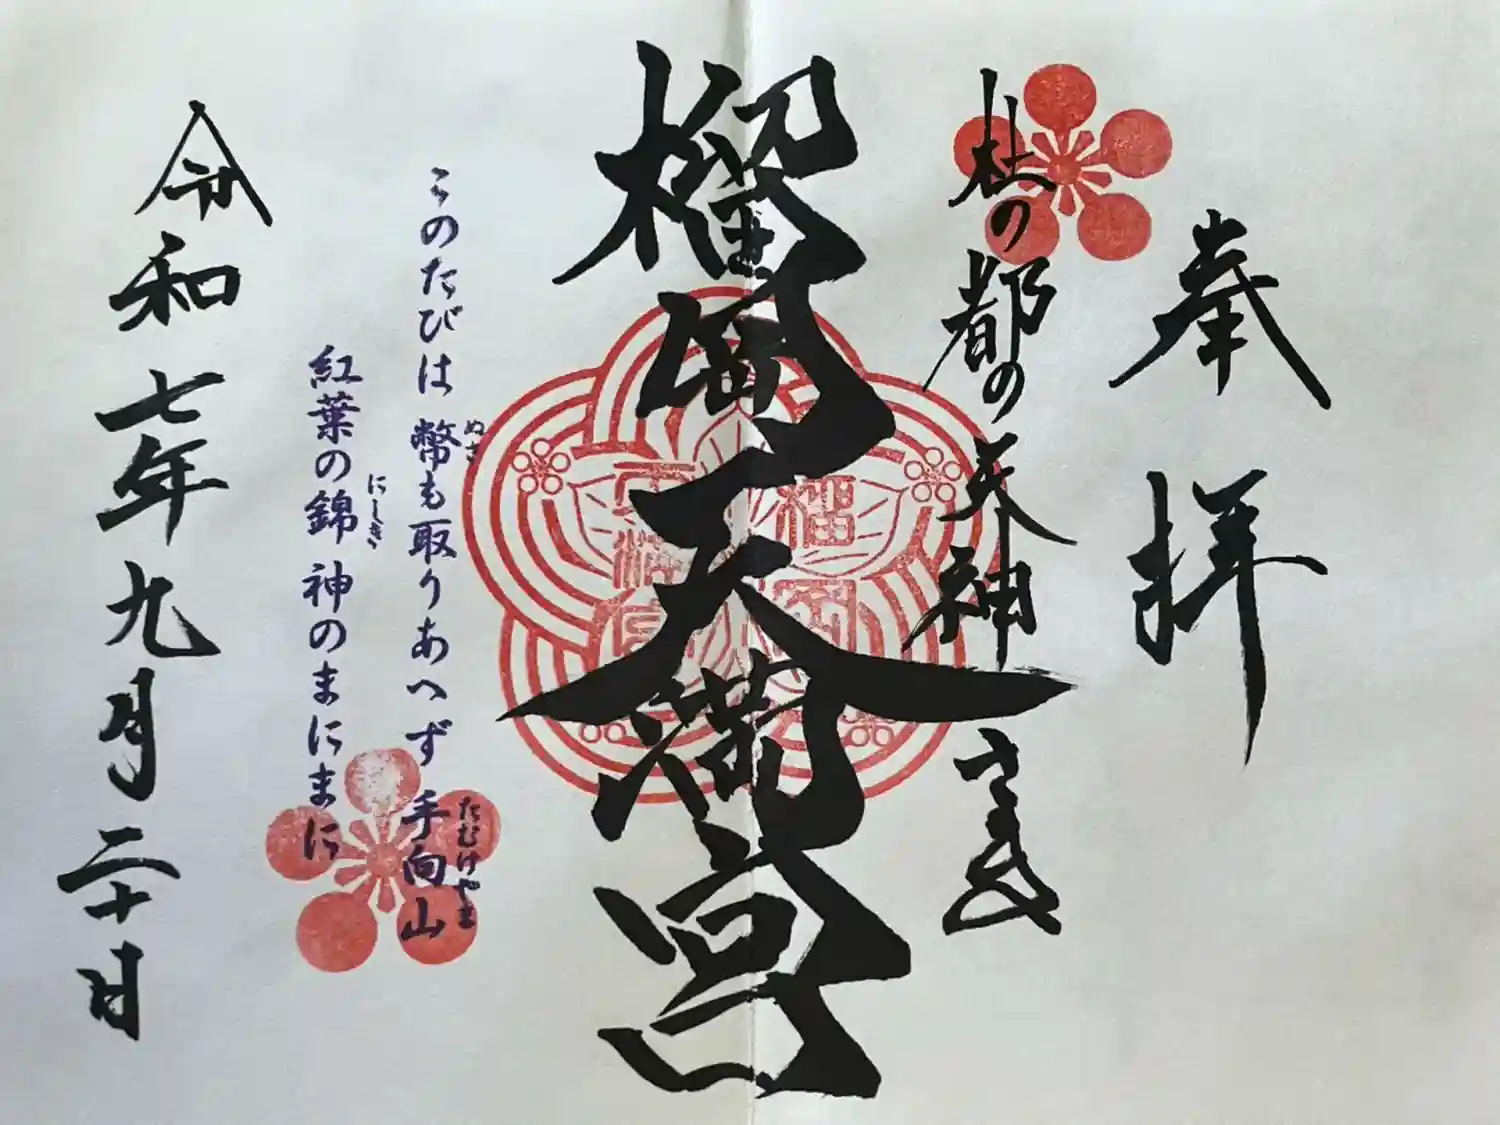 奉拝
杜の都の天神さま
榴岡天満宮
榴岡
天満宮
このたびは 幣も取りあへず 手向山
ぬさ
たむけやま
紅葉の錦 神のまにまに
にしき
令和七年九月二十日